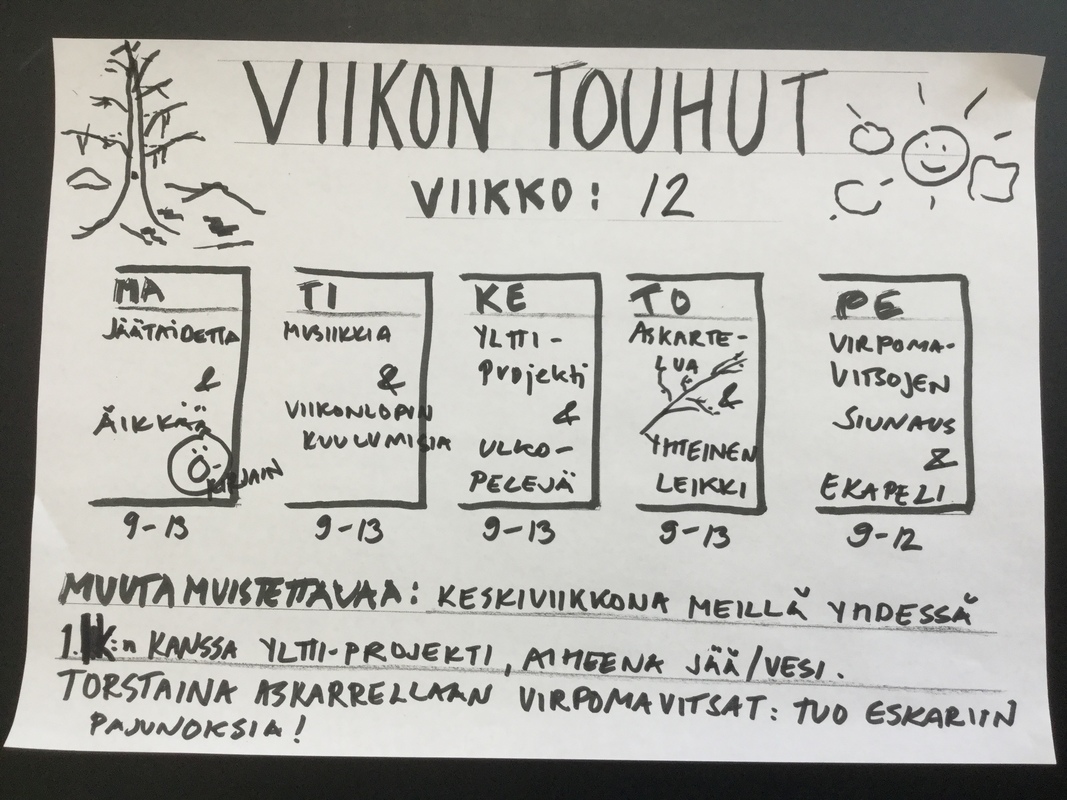 VIIKON TOUHUT
VIIKKO: 12
MA
JÄÄTAIDETTA
&
ÄIKKÄÄ
Ö-KIRJAIN
9-13
TI
MUSIIKKIA
&
VIIKONLOPUN
KUULUMISIA
9-13
KE
YLTTI-
Projekti
&
ULKO-
PELEJÄ
9-13
TO
ASKARTE-
LUA
&
YHTEINEN
LEIKKI
9-13
PE
VIRPOMA-
VITSOJEN
SIUNAUS
&
EKAPELI
9-12
MUUTA MUISTETTAVAA: KESKIVIIKKONA MEILLÄ YHDESSÄ
1.lK:n KANSSA YLTTI-PROJEKTI, AIHEENA JÄÄ/VESI.
TORSTAINA ASKARRELLAAN VIRPOMAVITSAT: TUO ESKARIIN
PAJUNOKSIA!